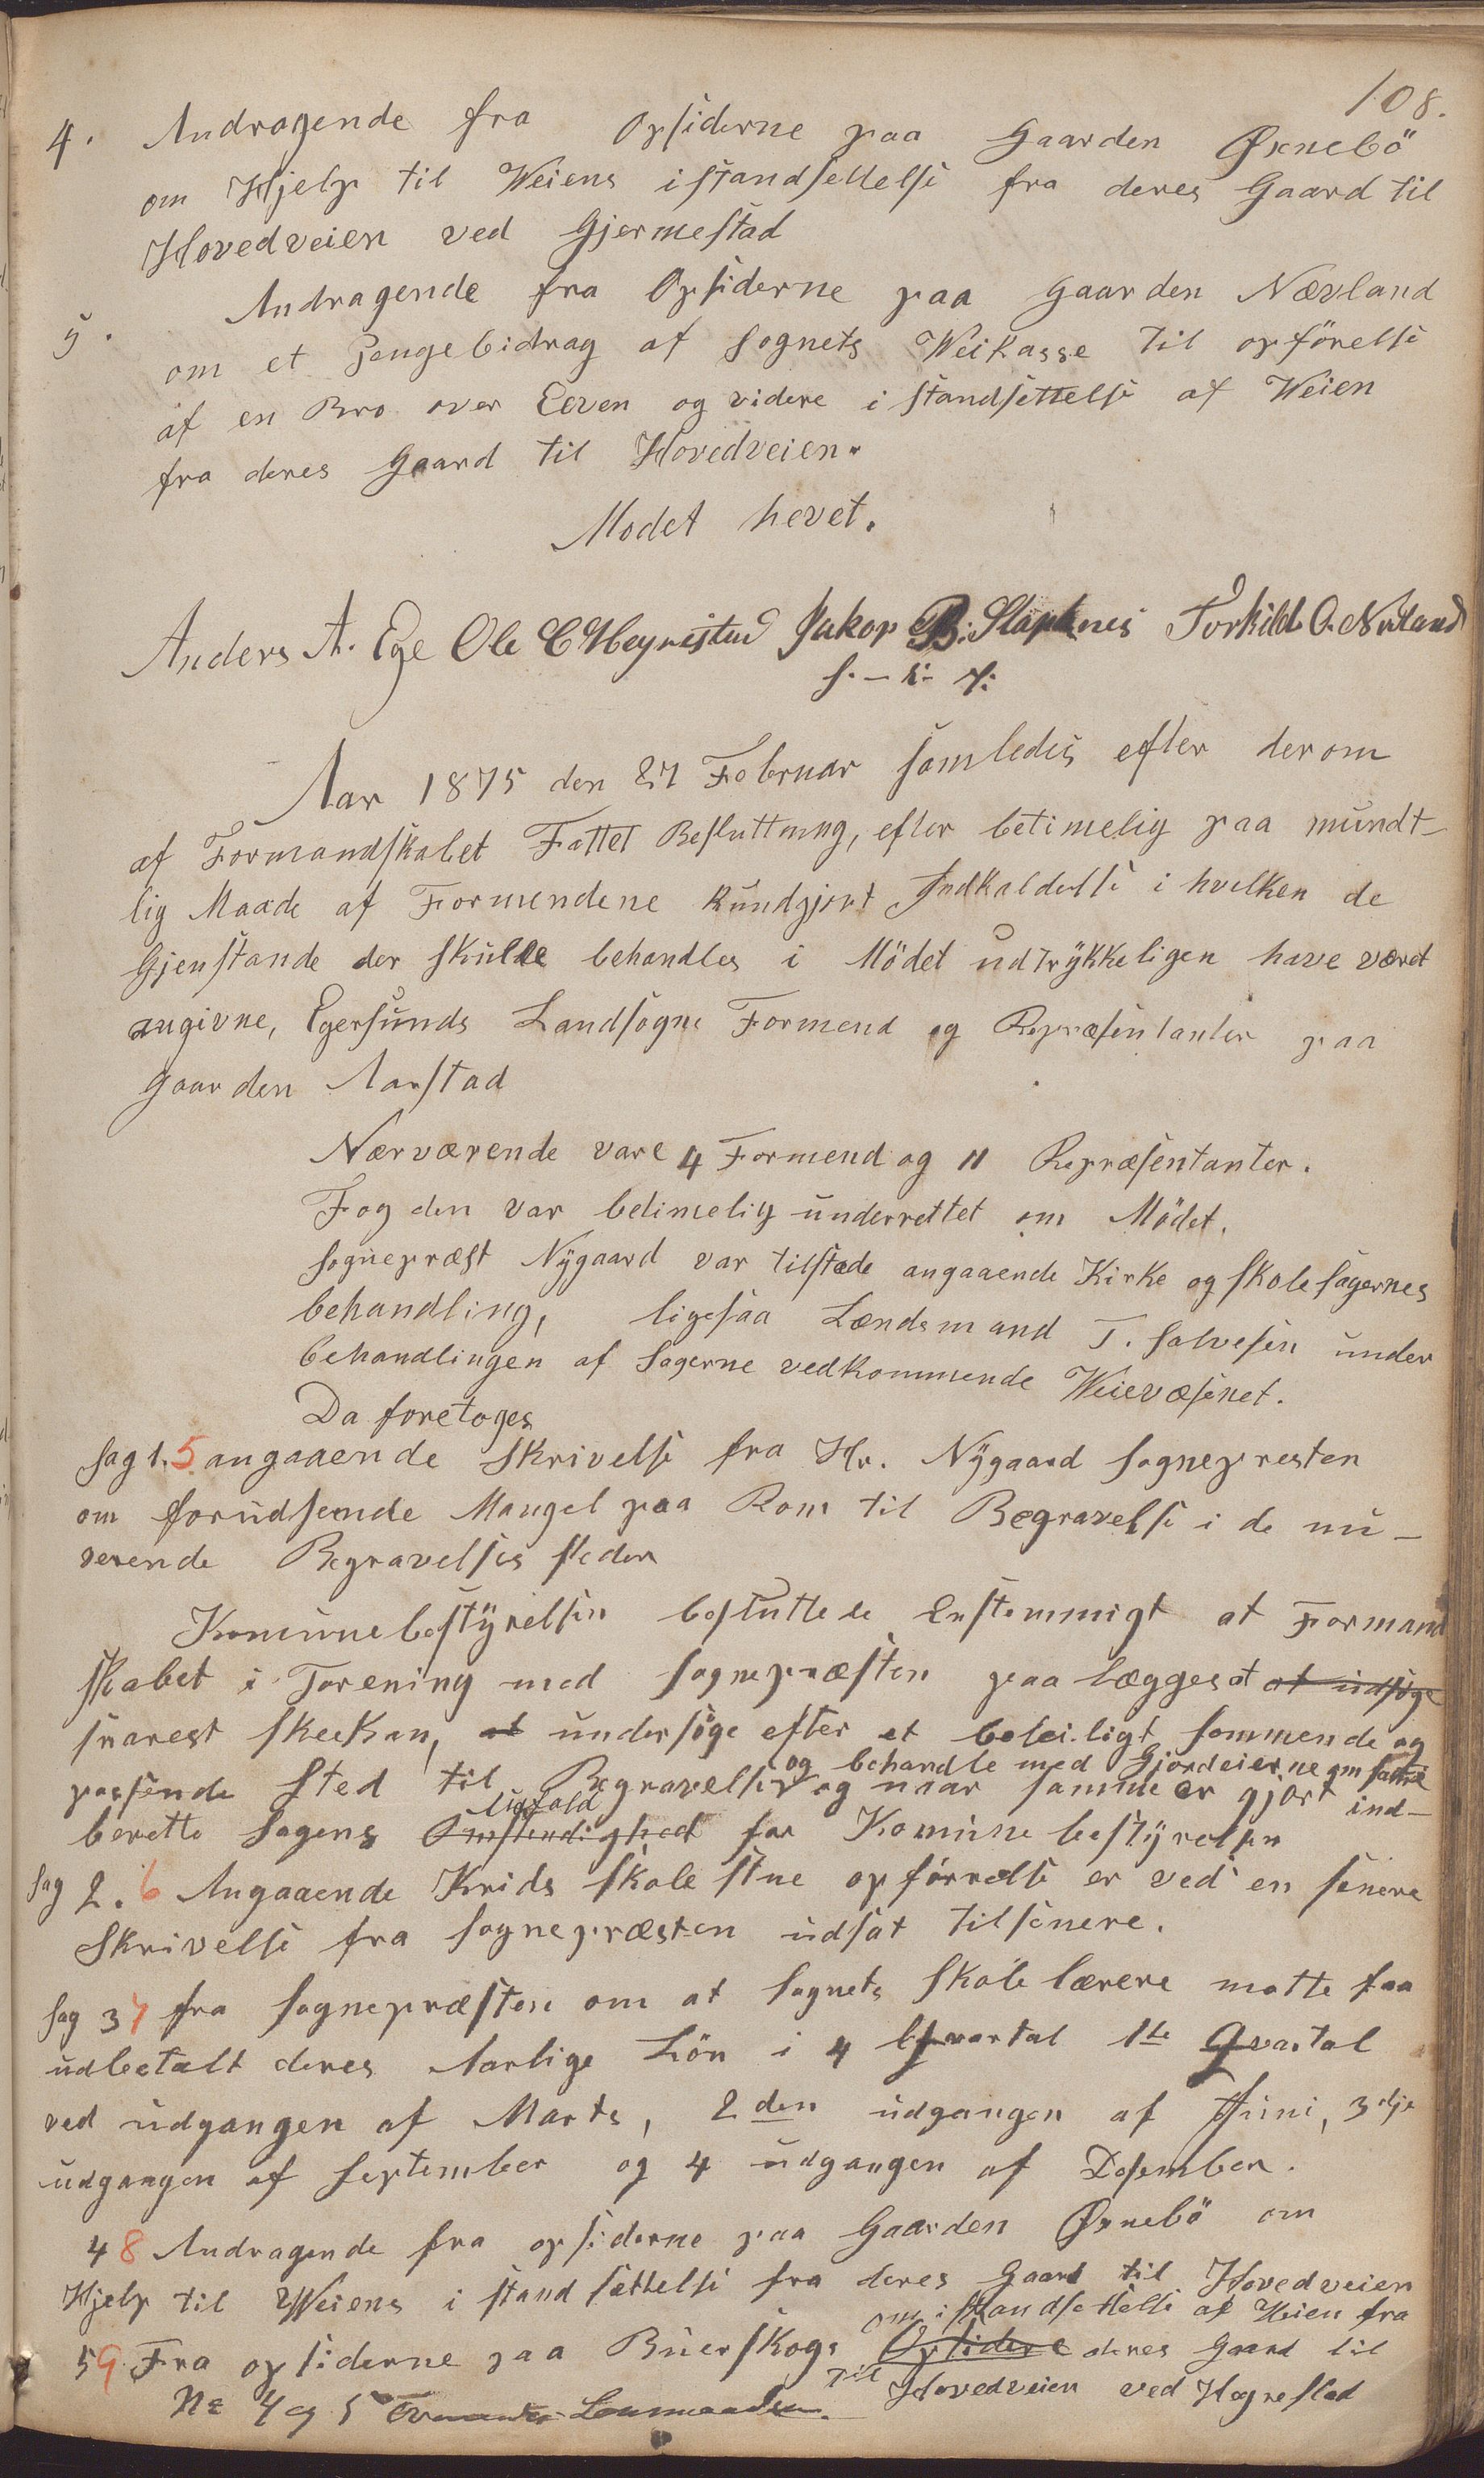 108.
4. Andragende fra Opsiderne paa Gaarden Øxnebö
om Hjelp til Weiens istandsettelse fra deres Gaard til
Hovedveien ved Gjermestad
5. Andragende fra Opsiderne paa gaarden Nævland
om et Pengebidrag af Sognets Weikasse til opförelse
af en Bro over Elven og videre i standsettelse af Weien
fra deres Gaard til Hovedveien.
Modet hevet.
Anders A. Ege Ole C Hegrestad Jakop B. Slapknes Torkild O. Nevland
Aar 1875 den 27 Februar samledes efter derom
af Formandskabet Fattet Besluttning, efter betimelig paa mundt-
lig Maade af Formendene kundgjort Indkaldelse i hvilken de
Gjenstande der skulde behandles i Mödet udtrykkeligen have været
angivne, Egersunds Landsogns Formend og Repræsentanter paa
gaarden Aarstad
Nærværende vare 4 Formend og 11 Repræsentanter.
Fogden var betimelig underrettet om Mödet.
Sognepræst Nygaard var tilstede angaaende Kirke og Skolesagernes
behandling, ligesaa Lændsmand T. Salvesen under
behandlingen af Sagerne vedkommende Weievæsenet.
Da foretoges
Sag 1. 5 angaaende Skrivelse fra Hr. Nygaard Sognepresten
om forudseende Mangel paa Rom til Begravelse i de nu-
verende Begravelses steder
Komunebestyrelsen besluttede Enstemmigt at Formand
skabet i Forening med Sognepræsten paa lægges at at udsöge
snarest skeekan, at undersöge efter et beleiligt sommende og
og behandle med Gjordeierne om samme
passende Sted til Begravelser og naar samme er gjort ind-
berette Sagens Omstendighed for Komunebestyrelsen
Sag 2. 6 Angaaende Krids skole stue opförrelse er ved en senere
Skrivelse fra Sognepræsten udsat tilsenere.
Sag 3 7 fra Sognepræsten om at Sognets Skole lærere motte faa
udbetalt deres Aarlige Lön i 4 qvartal 1te Qvartal
ved udgangen af Marts, 2den udgangen af Juni, 3dje
udgangen af September og 4 udgangen af Desember.
4 8 Andragende fra opsiderne paa Gaarden Øxnebö om
Hjelp til Weiens i stand sættelse fra deres Gaard til Hovedveien
om istandsettelse af Weien fra
5 9 Fra opsiderne paa Buerskogs Opsidere deres Gaard til
til Hovedveien ved Hegrestad
No 4 og 5 Lensmanden.